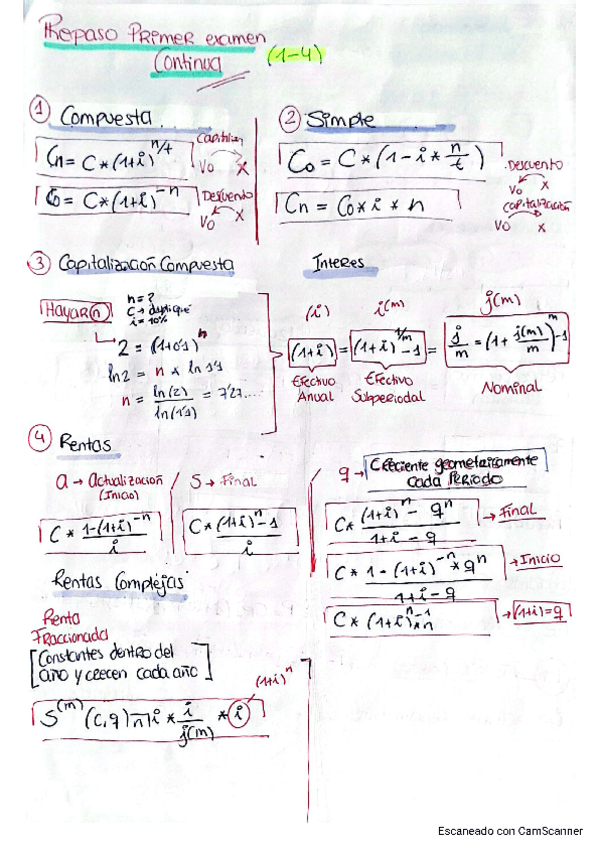 Repaso Primer examen
Continua (1-4)
① Compuesta
Cn = C*(1+i)^n/t
Vo X
Co = C*(1+i)^-n Descuento
Vo X
② Simple
Co = C*(1-i*n/t) Descuento
Vo X
Cn = Co*i*n Capitalización
Vo X
③ Capitalización Compuesta
Hayar n
n = ?
i = 10%
2 = (1+0'1)^n
ln2 = n x ln 1'1
n = ln(2)/ln(1'1) = 7'27....
Interes
(i) i(m) j(m)
(1+i) = (1+i)^1/m -1 = j/m = (1+ j(m)/m)^m -1
Efectivo Anual
Efectivo Subperiodal
Nominal
④ Rentas
a → Actualización
(Inicio)
C * 1-(1+i)^-n / i
S → Final
C*(1+i)^n-1 / i
q → Creciente geometricamente
cada Periodo
C* (1+i)^n - q^n / 1+i-q → Final
C * 1-(1+i)^-n * q^n / 1+i-q → Inicio
C * (1+i)^n-1 * n → (1+i)=q
Rentas Complejas
Renta
Fraccionada
[Constantes dentro del
año y crecen cada año]
(1+i)^n
S^(m) (C,q) n┐i * i/j(m) * i
Escaneado con CamScanner